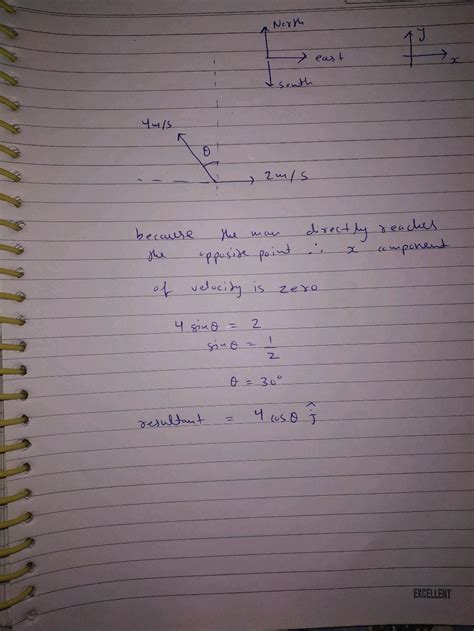 North
y
east
x
South
4m/s
θ
2m/s
because the man directly reaches
the opposite point ∴ x component
of velocity is zero
4 sinθ = 2
sinθ = 1/2
θ = 30°
resultant = 4 cosθ ĵ
EXCELLENT